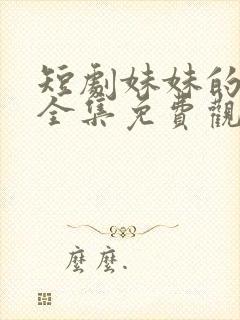 短劇妹妹的
全集免費觀
麼麼.